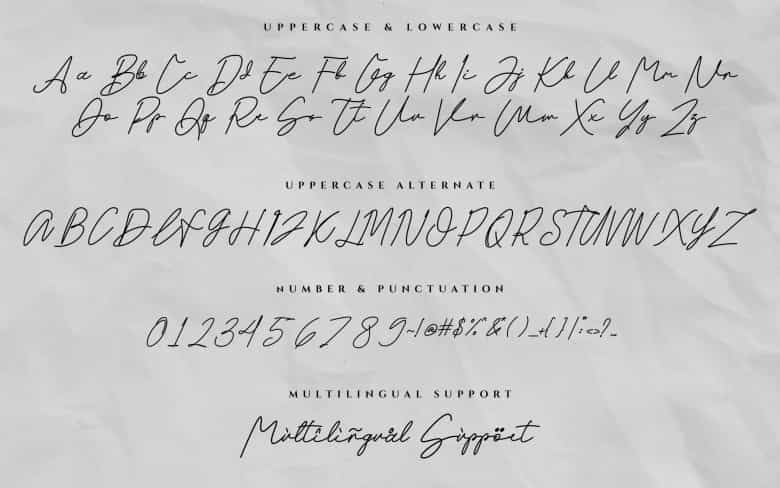 UPPERCASE & LOWERCASE
Aa Bb Cc Dd Ee Ff Gg Hh Ii Jj Kk Ll Mm Nn
Oo Pp Qq Rr Ss Tt Uu Vv Ww Xx Yy Zz
UPPERCASE ALTERNATE
ABCDEFGHIJKLMNOPQRSTUVWXYZ
NUMBER & PUNCTUATION
0123456789~!@#$%&()_+{}|:<>?-
MULTILINGUAL SUPPORT